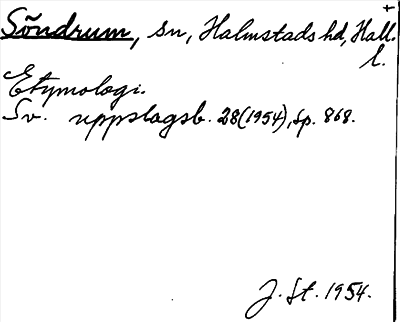 +
Söndrum, sn, Halmstads hd, Hall.
l.
Etymologi.
Sv. uppslagsb. 28(1954), sp. 868.
J. St. 1954.